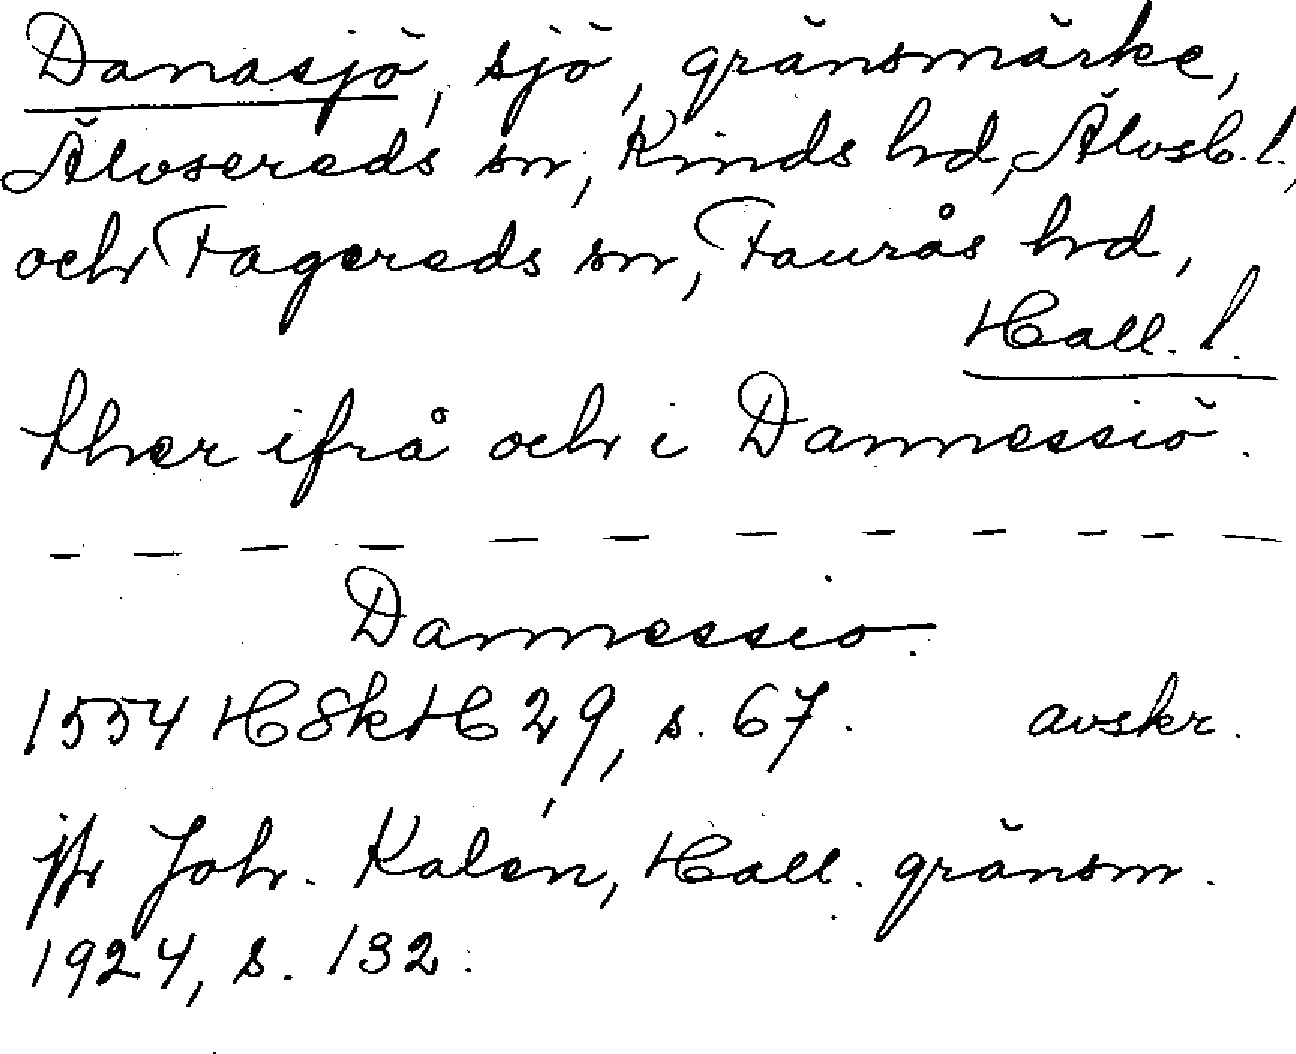 Danasjö, sjö, gränsmärke,
Älvsereds sn, Kinds hd, Älvsb. l.,
och Fagereds sn, Faurås hd,
Hall. l.
ther ifrå och i Dannessiö.
Dannessio.
1554 HSkH 29, s. 67. avskr.
jfr Joh. Kalén, Hall. gränsm.
1924, s. 132.